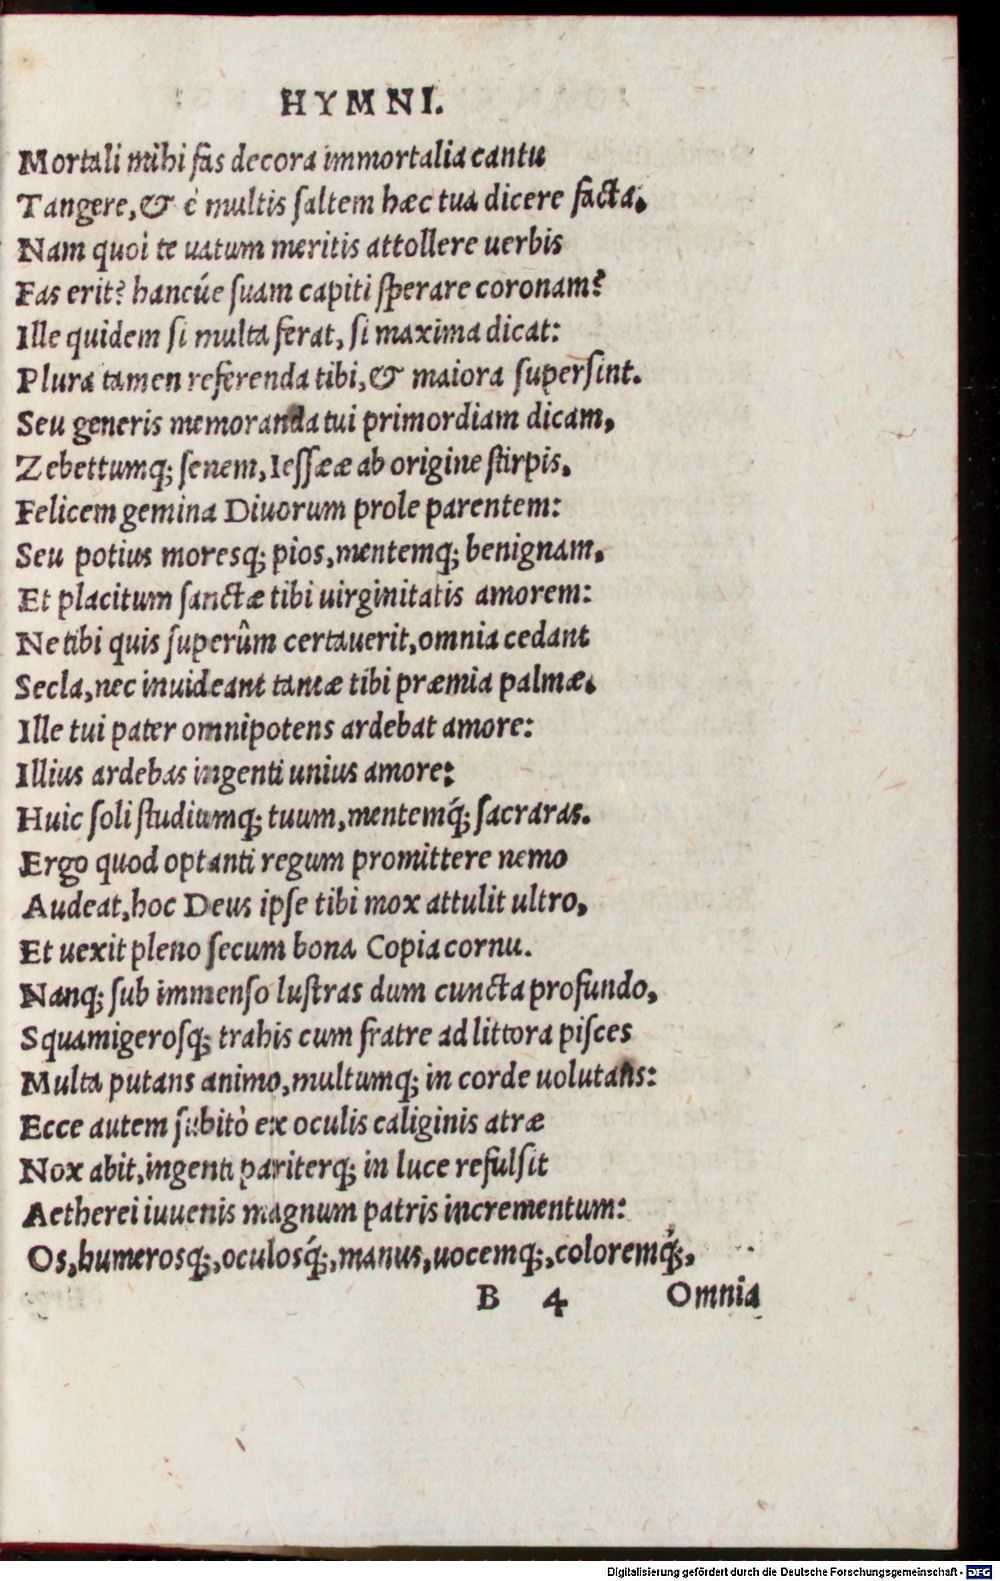 HYMNI.
Mortali mihi fas decora immortalia cantu
Tangere, & è multis saltem hæc tua dicere facta.
Nam quoi te uatum meritis attollere uerbis
Fas erit? hancúe suam capiti sperare coronam?
Ille quidem si multa ferat, si maxima dicat:
Plura tamen referenda tibi, & maiora supersint.
Seu generis memoranda tui primordiam dicam,
Zebettumq; senem, Iessææ ab origine stirpis,
Felicem gemina Diuorum prole parentem:
Seu potius moresq; pios, mentemq; benignam,
Et placitum sanctæ tibi uirginitatis amorem:
Ne tibi quis superûm certauerit, omnia cedant
Secla, nec inuideant tantæ tibi præmia palmæ.
Ille tui pater omnipotens ardebat amore:
Illius ardebas ingenti unius amore:
Huic soli studiumq; tuum, mentemq́; sacraras.
Ergo quod optanti regum promittere nemo
Audeat, hoc Deus ipse tibi mox attulit ultro,
Et uexit pleno secum bona Copia cornu.
Nanq; sub immenso lustras dum cuncta profundo,
Squamigerosq; trahis cum fratre ad littora pisces
Multa putans animo, multumq; in corde uolutans:
Ecce autem subitò ex oculis caliginis atræ
Nox abit, ingenti pariterq; in luce refulsit
Aetherei iuuenis magnum patris incrementum:
Os, humerosq;, oculosq́;, manus, uocemq;, coloremq́;,
B 4 Omnia
Digitalisierung gefördert durch die Deutsche Forschungsgemeinschaft - DFG